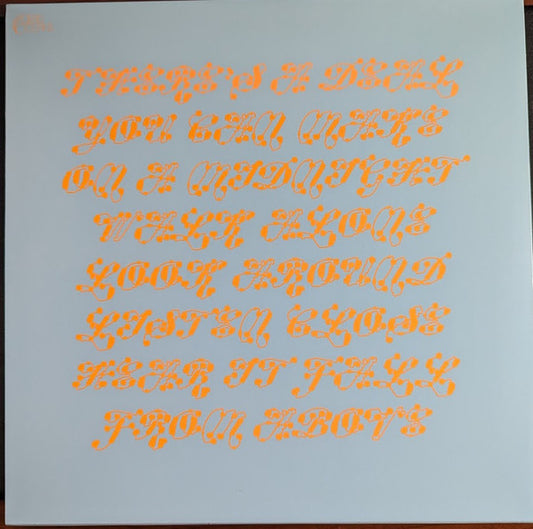 THERE'S A DEAL
YOU CAN MAKE
ON A MIDNIGHT
WALK ALONE
LOOK AROUND
LISTEN CLOSE
HEAR IT FALL
FROM ABOVE